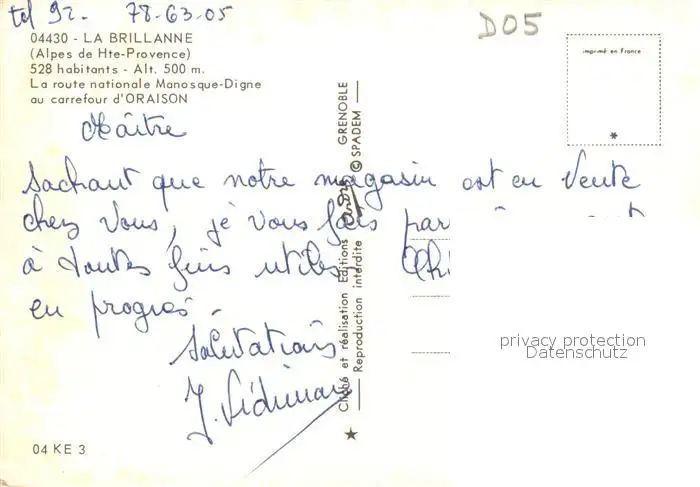 tel 92. 78-63-05
D05
04430 - LA BRILLANNE
(Alpes de Hte-Provence)
528 habitants - Alt. 500 m.
La route nationale Manosque-Digne
au carrefour d'ORAISON
imprimé en France
*
Maître
Sachant que notre magasin est en Vente
chez Vous, je vous fais par
à toutes fins utiles
en progrès.
Salutations
04 KE 3
Cliché et réalisation Editions André GRENOBLE
Reproduction interdite © SPADEM
privacy protection
Datenschutz